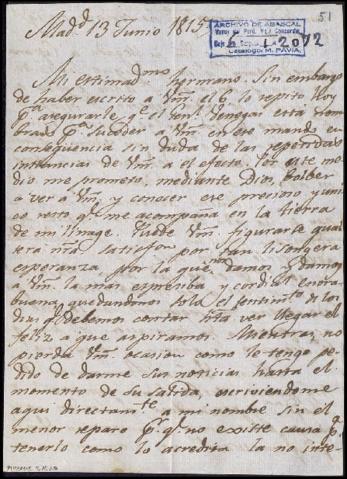 Mad.d 13 Junio 1815
51
ARCHIVO DE ABASCAL
Virrey del Perú
M. PAVIA
Mi estimad.mo hermano. Sin embargo
de haber escrito a Vm el 6 lo repito hoy
p.a asegurarle q.e el
brado p.a suceder a Vm en ese mando en
conseqüencia sin duda de las repetidas
instancias de Vm a el efecto. Por este me
dio me prometo, mediante Dios, bolber
a ver a Vm, y conocer ese precioso y uni
co resto q.e me acompaña en la tierra
de mi linage. Puede Vm figurarse qual
sera mia satisfon por tan lisongera
esperanza por la que damos
a Vm la mas expresiva y cordial enora
buena quedandonos sola el sentim.to de los
dias q.e debemos contar hta ver llegar el
feliz a que aspiramos. Mientras, no
pierda Vm ocasion como le tengo pe
dido de darme sus noticias hasta el
momento de su salida, escriviendome
aqui directam.te a mi nombre sin el
menor reparo p.r q.e no existe causa p.a
tenerlo como lo acredita la no inte-